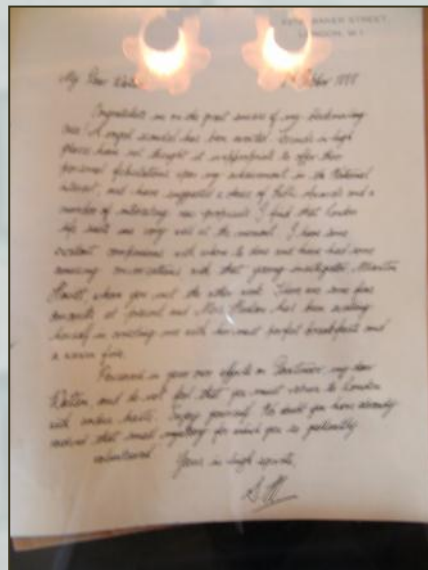 221b BAKER STREET,
LONDON, W.1.
My Dear
Congratulate me on the great success of my
case! A royal scandal has been averted. Friends in high
places have not thought it inappropriate to offer their
personal felicitations upon my achievement in the National
interest, and have suggested a choice of Public Awards and a
number of interesting new proposals. I find that London
life suits me very well at the moment. I have some
excellent companions with whom to dine and have had some
amusing conversations with that young investigator, Martin
Hewitt, whom you met the other week. There are some fine
concerts at present and Mrs. Hudson has been
herself in
a warm fire.
Persevere in your own efforts in my dear
Watson, and do not feel that you must return to London
with undue haste. Enjoy yourself. No doubt you have already
solved that small mystery for which you so patiently
volunteered.
Yours in high spirits,
S.H.